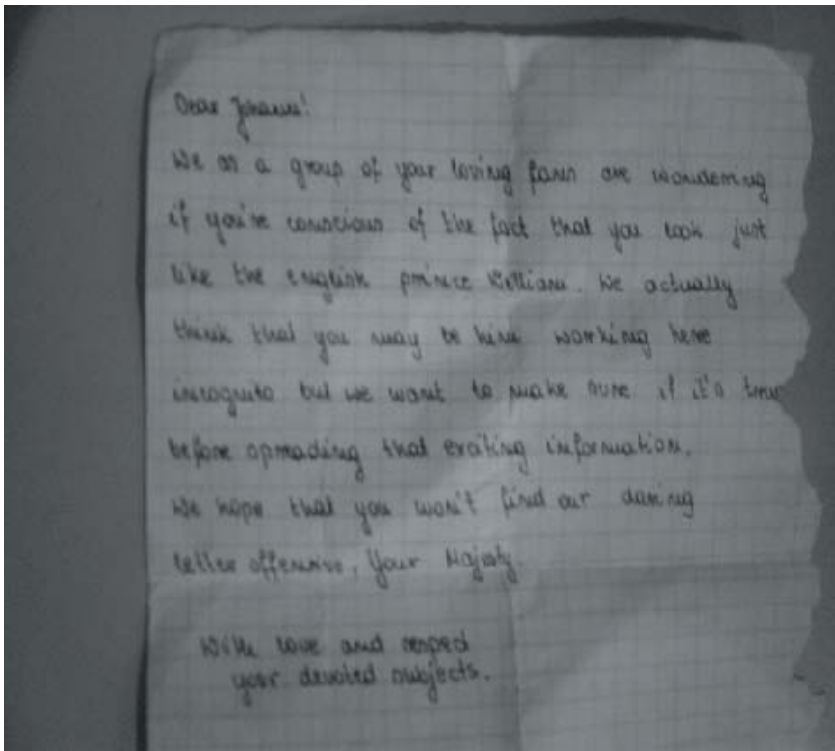 Dear Johannes!
We as a group of your loving fans are wondering
if you're conscious of the fact that you look just
like the english prince William. We actually
think that you may be him working here
incognito but we want to make sure if it's true
before spreading that exciting information.
We hope that you won't find our daring
letter offensive, Your Majesty.
With love and respect
your devoted subjects.